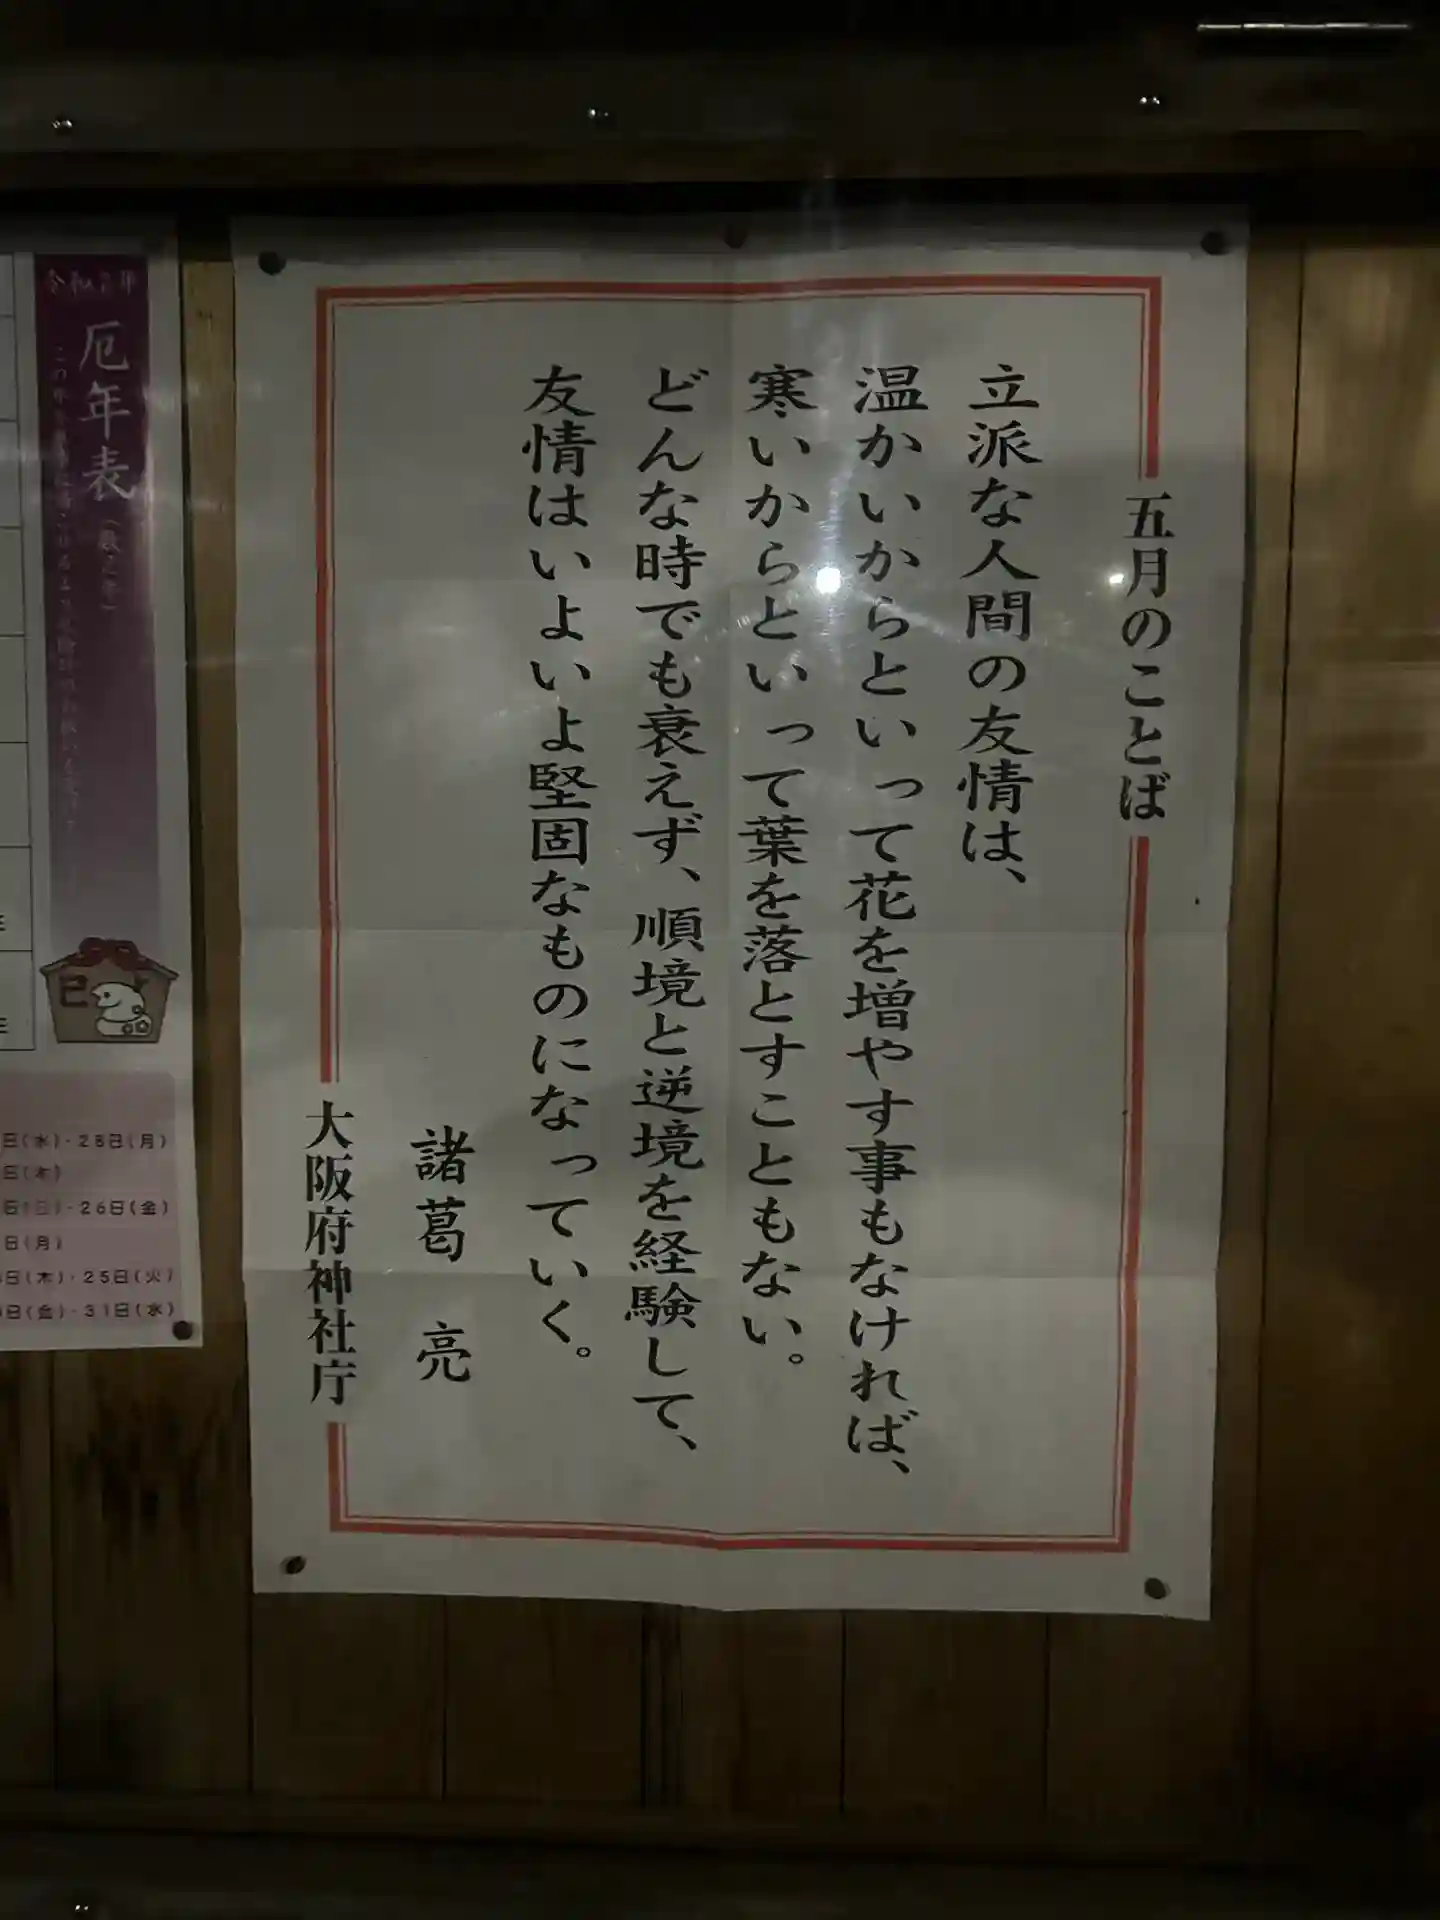 五月のことば
立派な人間の友情は、
温かいからといって花を増やす事もなければ、
寒いからといって葉を落とすこともない。
どんな時でも衰えず、順境と逆境を経験して、
友情はいよいよ堅固なものになっていく。
諸葛 亮
大阪府神社庁
厄年表
(数え年)
巳
日(水)・28日(月)
日(木)
・26日(金)
日(月)
日(木)・25日(火)
日(金)・31日(水)